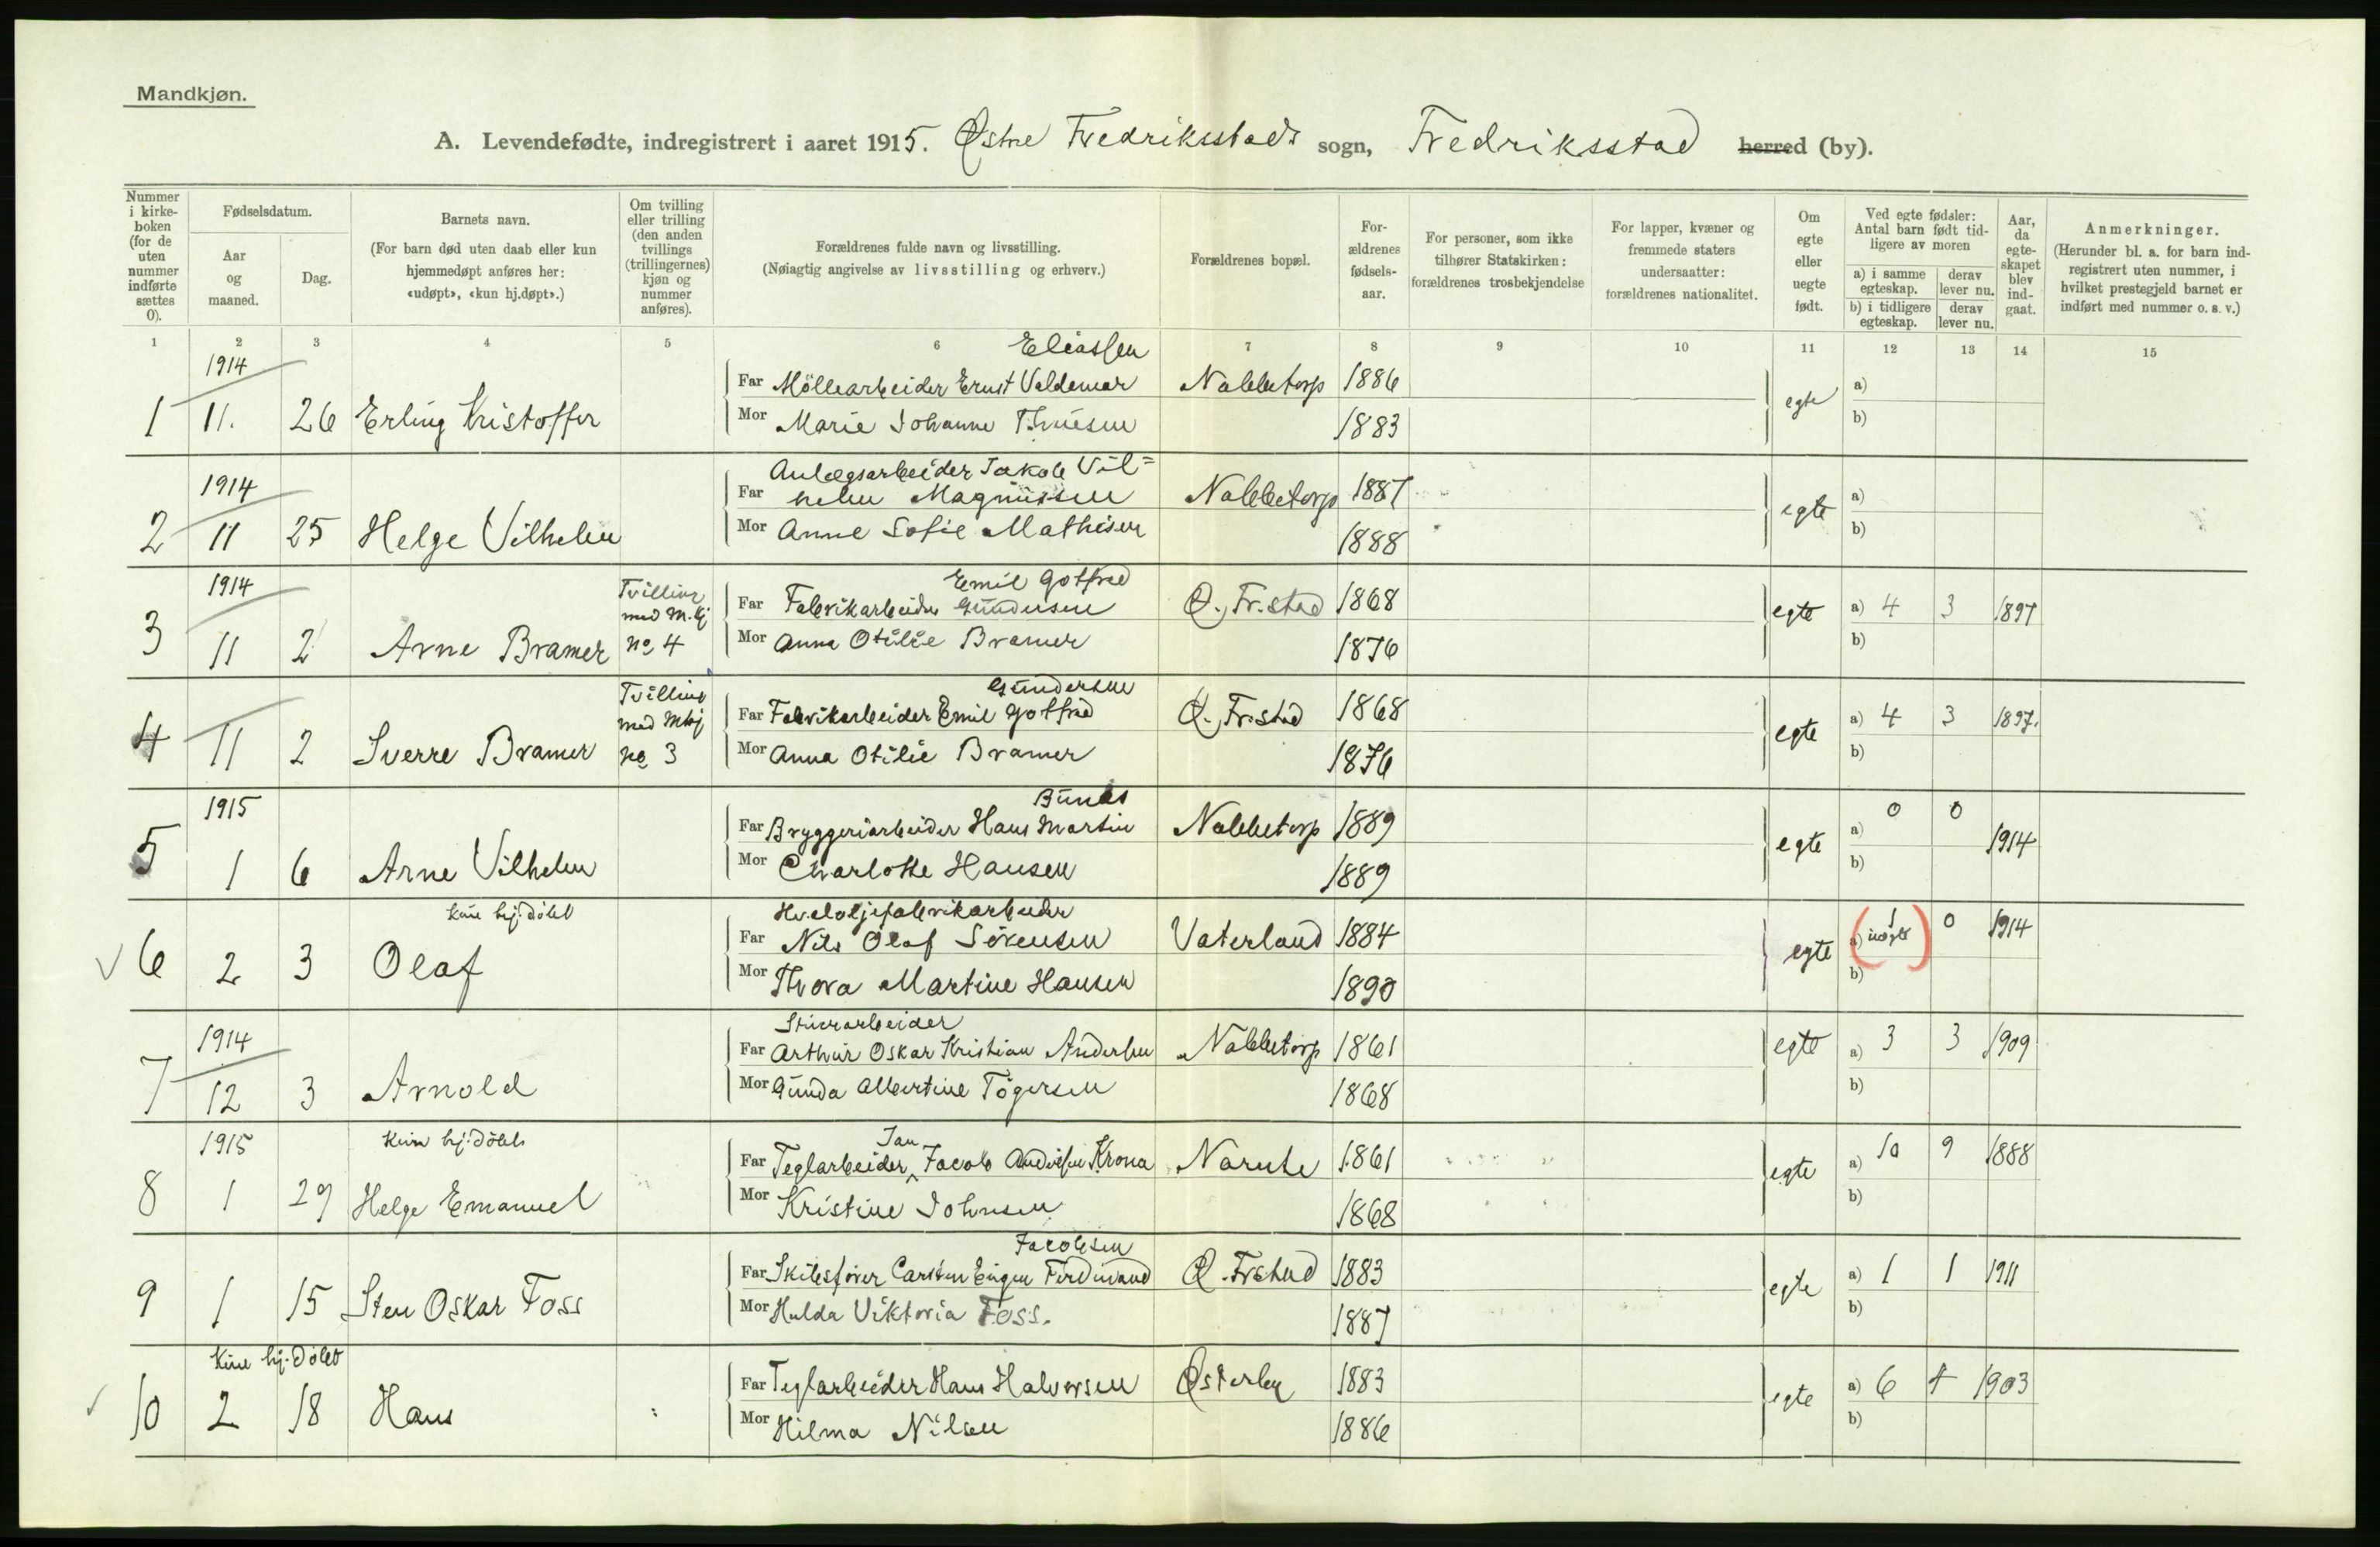 Mandkjøn.
A. Levendefødte, indregistrert i aaret 1915. Østre Fredriksstads sogn, Fredriksstad herred (by).
Nummer i kirkeboken (for de uten nummer indførte sættes 0).
Fødselsdatum.
Aar og maaned.
Dag.
Barnets navn.
(For barn død uten daab eller kun hjemmedøpt anføres her: «udøpt», «kun hj.døpt».)
Om tvilling eller trilling (den anden tvillings (trillingernes) kjøn og nummer anføres).
Forældrenes fulde navn og livsstilling.
(Nøiagtig angivelse av livsstilling og erhverv.)
Forældrenes bopæl.
Forældrenes fødselsaar.
For personer, som ikke tilhører Statskirken: forældrenes trosbekjendelse
For lapper, kvæner og fremmede staters undersaatter: forældrenes nationalitet.
Om egte eller uegte født.
Ved egte fødsler: Antal barn født tidligere av moren
a) i samme egteskap. derav lever nu.
b) i tidligere egteskap. derav lever nu.
Aar, da egteskapet blev indgaat.
Anmerkninger.
(Herunder bl. a. for barn indregistrert uten nummer, i hvilket prestegjeld barnet er indført med nummer o. s. v.)
1 2 3 4 5 6 7 8 9 10 11 12 13 14 15
1914 Eliassen
Far Möllearbeider Ernst Valdemar Nabbetorp 1886 a)
1 11. 26 Erling Kristoffer egte
Mor Marie Johanne Thuesen 1883 b)
1914 Anlægsarbeider Jakob Vil=
Far helm Magnussen Nabbetorp 1887 a)
2 11 25 Helge Vilhelm egte
Mor Anne Sofie Mathisen 1888 b)
1914 Tvilling Emil Gotfred
med M.kj Far Fabrikarbeider Gundersen Ø. Fr.stad 1868 egte a) 4 3 1897
3 11 2 Arne Bramer No 4 Mor Anna Otilie Bramer 1876 b)
Tvilling Gundersen
med Mkj Far Fabrikarbeider Emil Gotfred Ø. Fr.stad 1868 egte a) 4 3 1897.
4 11 2 Sverre Bramer No 3 Mor Anna Otilie Bramer 1876 b)
1915
Far Bryggeriarbeider Hans Martin Nabbetorp 1889 a) 0 0 1914
5 1 6 Arne Vilhelm egte
Mor Charlotte Hansen 1889 b)
kun hj.döbt Hvaloljefabrikarbeider
Far Nils Olaf Sörensen Vaterland 1884 egte a) 1 uegte 0 1914
6 2 3 Olaf
Mor Thora Martine Hansen 1890 b)
1914
Far Arthur Oskar Kristian Andersen Nabbetorp 1861 egte a) 3 3 1909
7 12 3 Arnold
Mor Gunda Albertine Tögersen 1868 b)
1915 Kun hj.döbt Jan
Far Teglarbeider Jacob Andersen Krona 1861 egte a) 10 9 1888
8 1 29 Helge Emanuel
Mor Kristine Johnsen 1868 b)
Jacobsen
Far Skibsförer Carsten Eugen Ferdinand Ø. Frstad 1883 egte a) 1 1 1911
9 1 15 Sten Oskar Foss
Mor Hulda Viktoria Foss. 1887 b)
Kun hj.döbt
Far Teglarbeider Hans Halvorsen Østerby 1883 egte a) 6 4 1903
10 2 18 Hans
Mor Hilma Nilsen 1886 b)